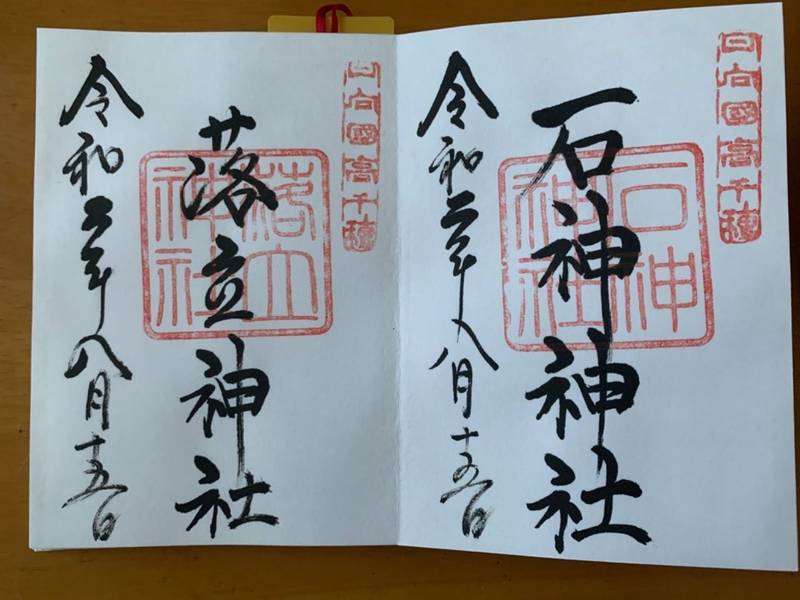 日向國高千穂
石神神社
石神神社
令和二年八月十五日
日向國高千穂
落立神社
落立神社
令和二年八月十五日